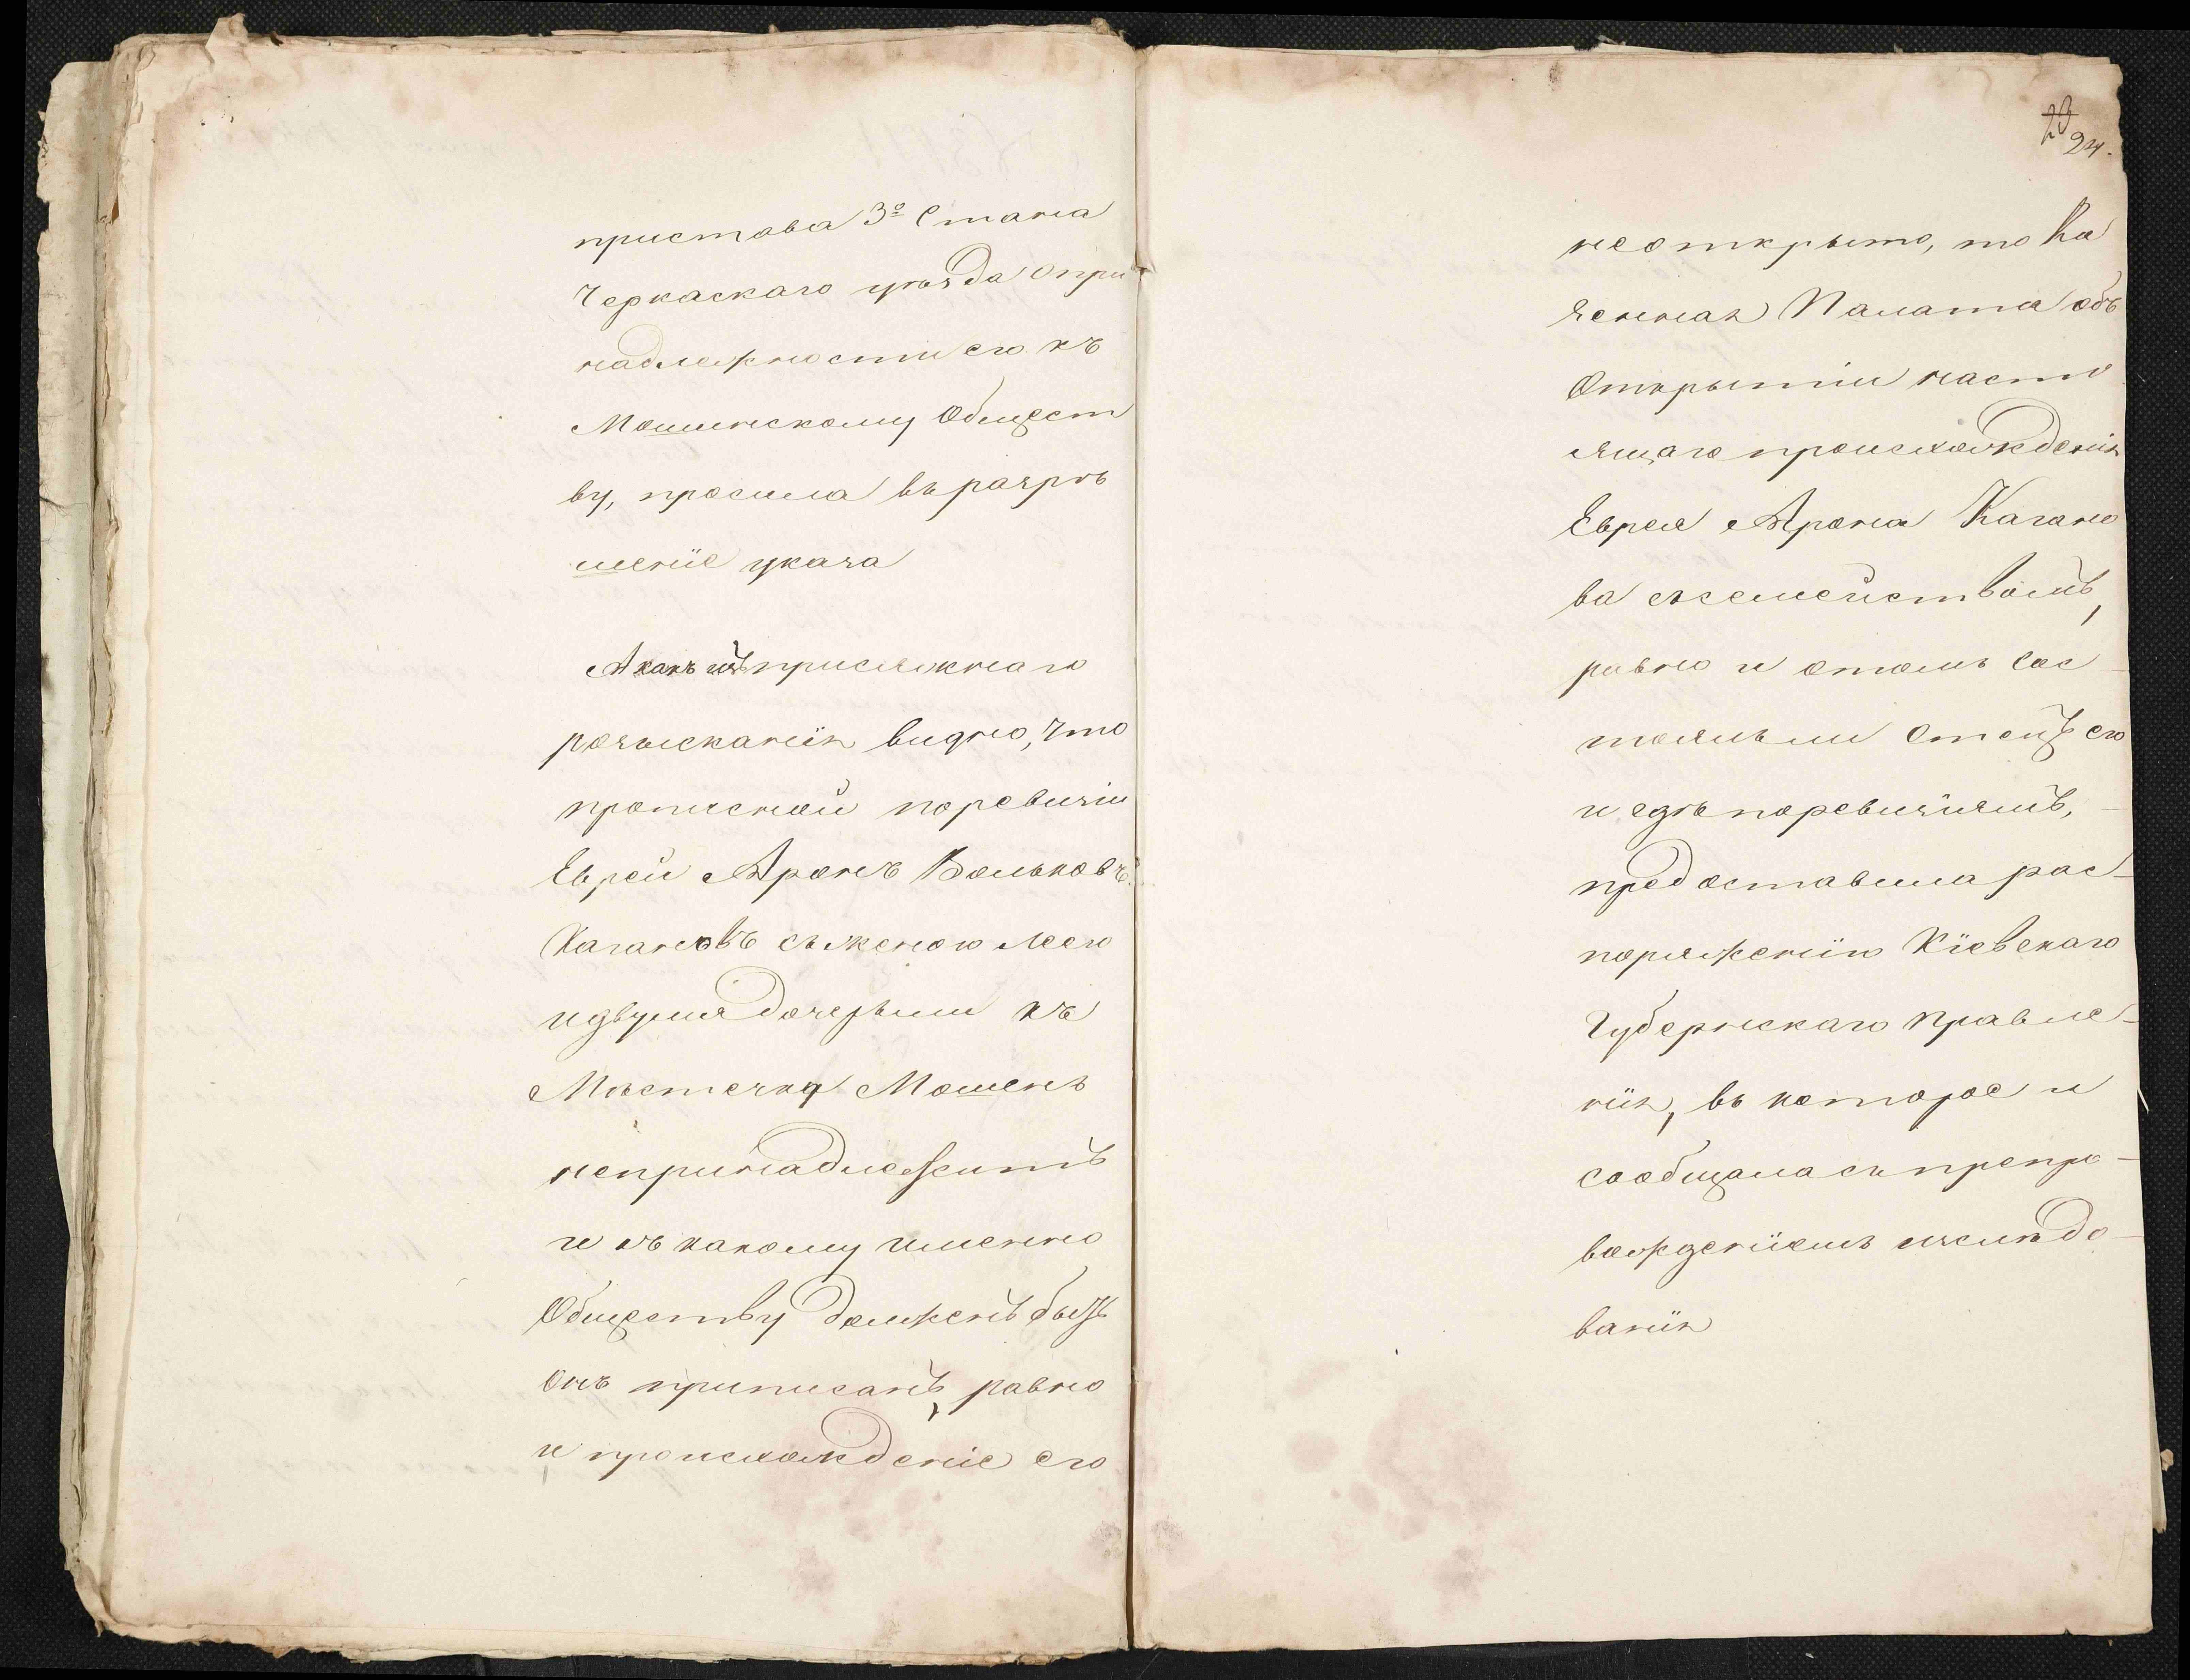 пристава 3º Стана
Черкаскаго уѣзда о при
надлежности его къ
Мошенскому Общест
ву, просила въ разрѣ
шеніе указа
А какъ изъ присяжнаго
розысканія видно, что
прописной по ревизіи
Еврей Аронъ Вольковъ
Кагановъ съ женою Леею
и двумя дочерьми къ
Мѣстечку Мошенъ
непринадлежитъ
и къ какому именно
Обществу долженъ быть
Онъ приписанъ, равно
и происхожденіе его
20 24.
неоткрыто, то Ка
зенная Палата объ
Открытіи насто
ящаго происхожденія
Еврея Арона Кагано
ва съ семействомъ,
равно и отомъ сос
тоялъ ли Отецъ его
и гдѣ по ревизіямъ,
предоставила рас-
поряженію Кіевскаго
Губернскаго Правле-
нія, въ которое и
сообщала съ препро-
вожденіемъ изслѣдо-
ванія